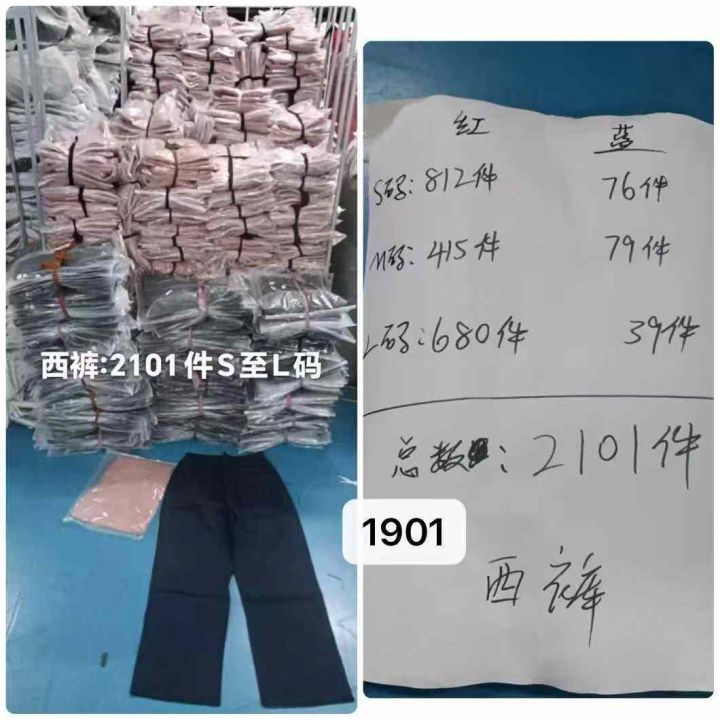 西裤:2101件S至L码
红 蓝
S码: 812件 76件
M码: 415件 79件
L码: 680件 39件
总数: 2101件
1901
西裤